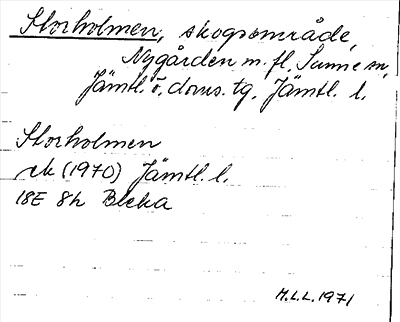 Storholmen, skogsområde,
Nygården m. fl. Sunne sn,
Jämtl. ö. doms. tg. Jämtl. l.
Storholmen
ek (1970) Jämtl. l.
18E 8h Bleka
M.L.L. 1971